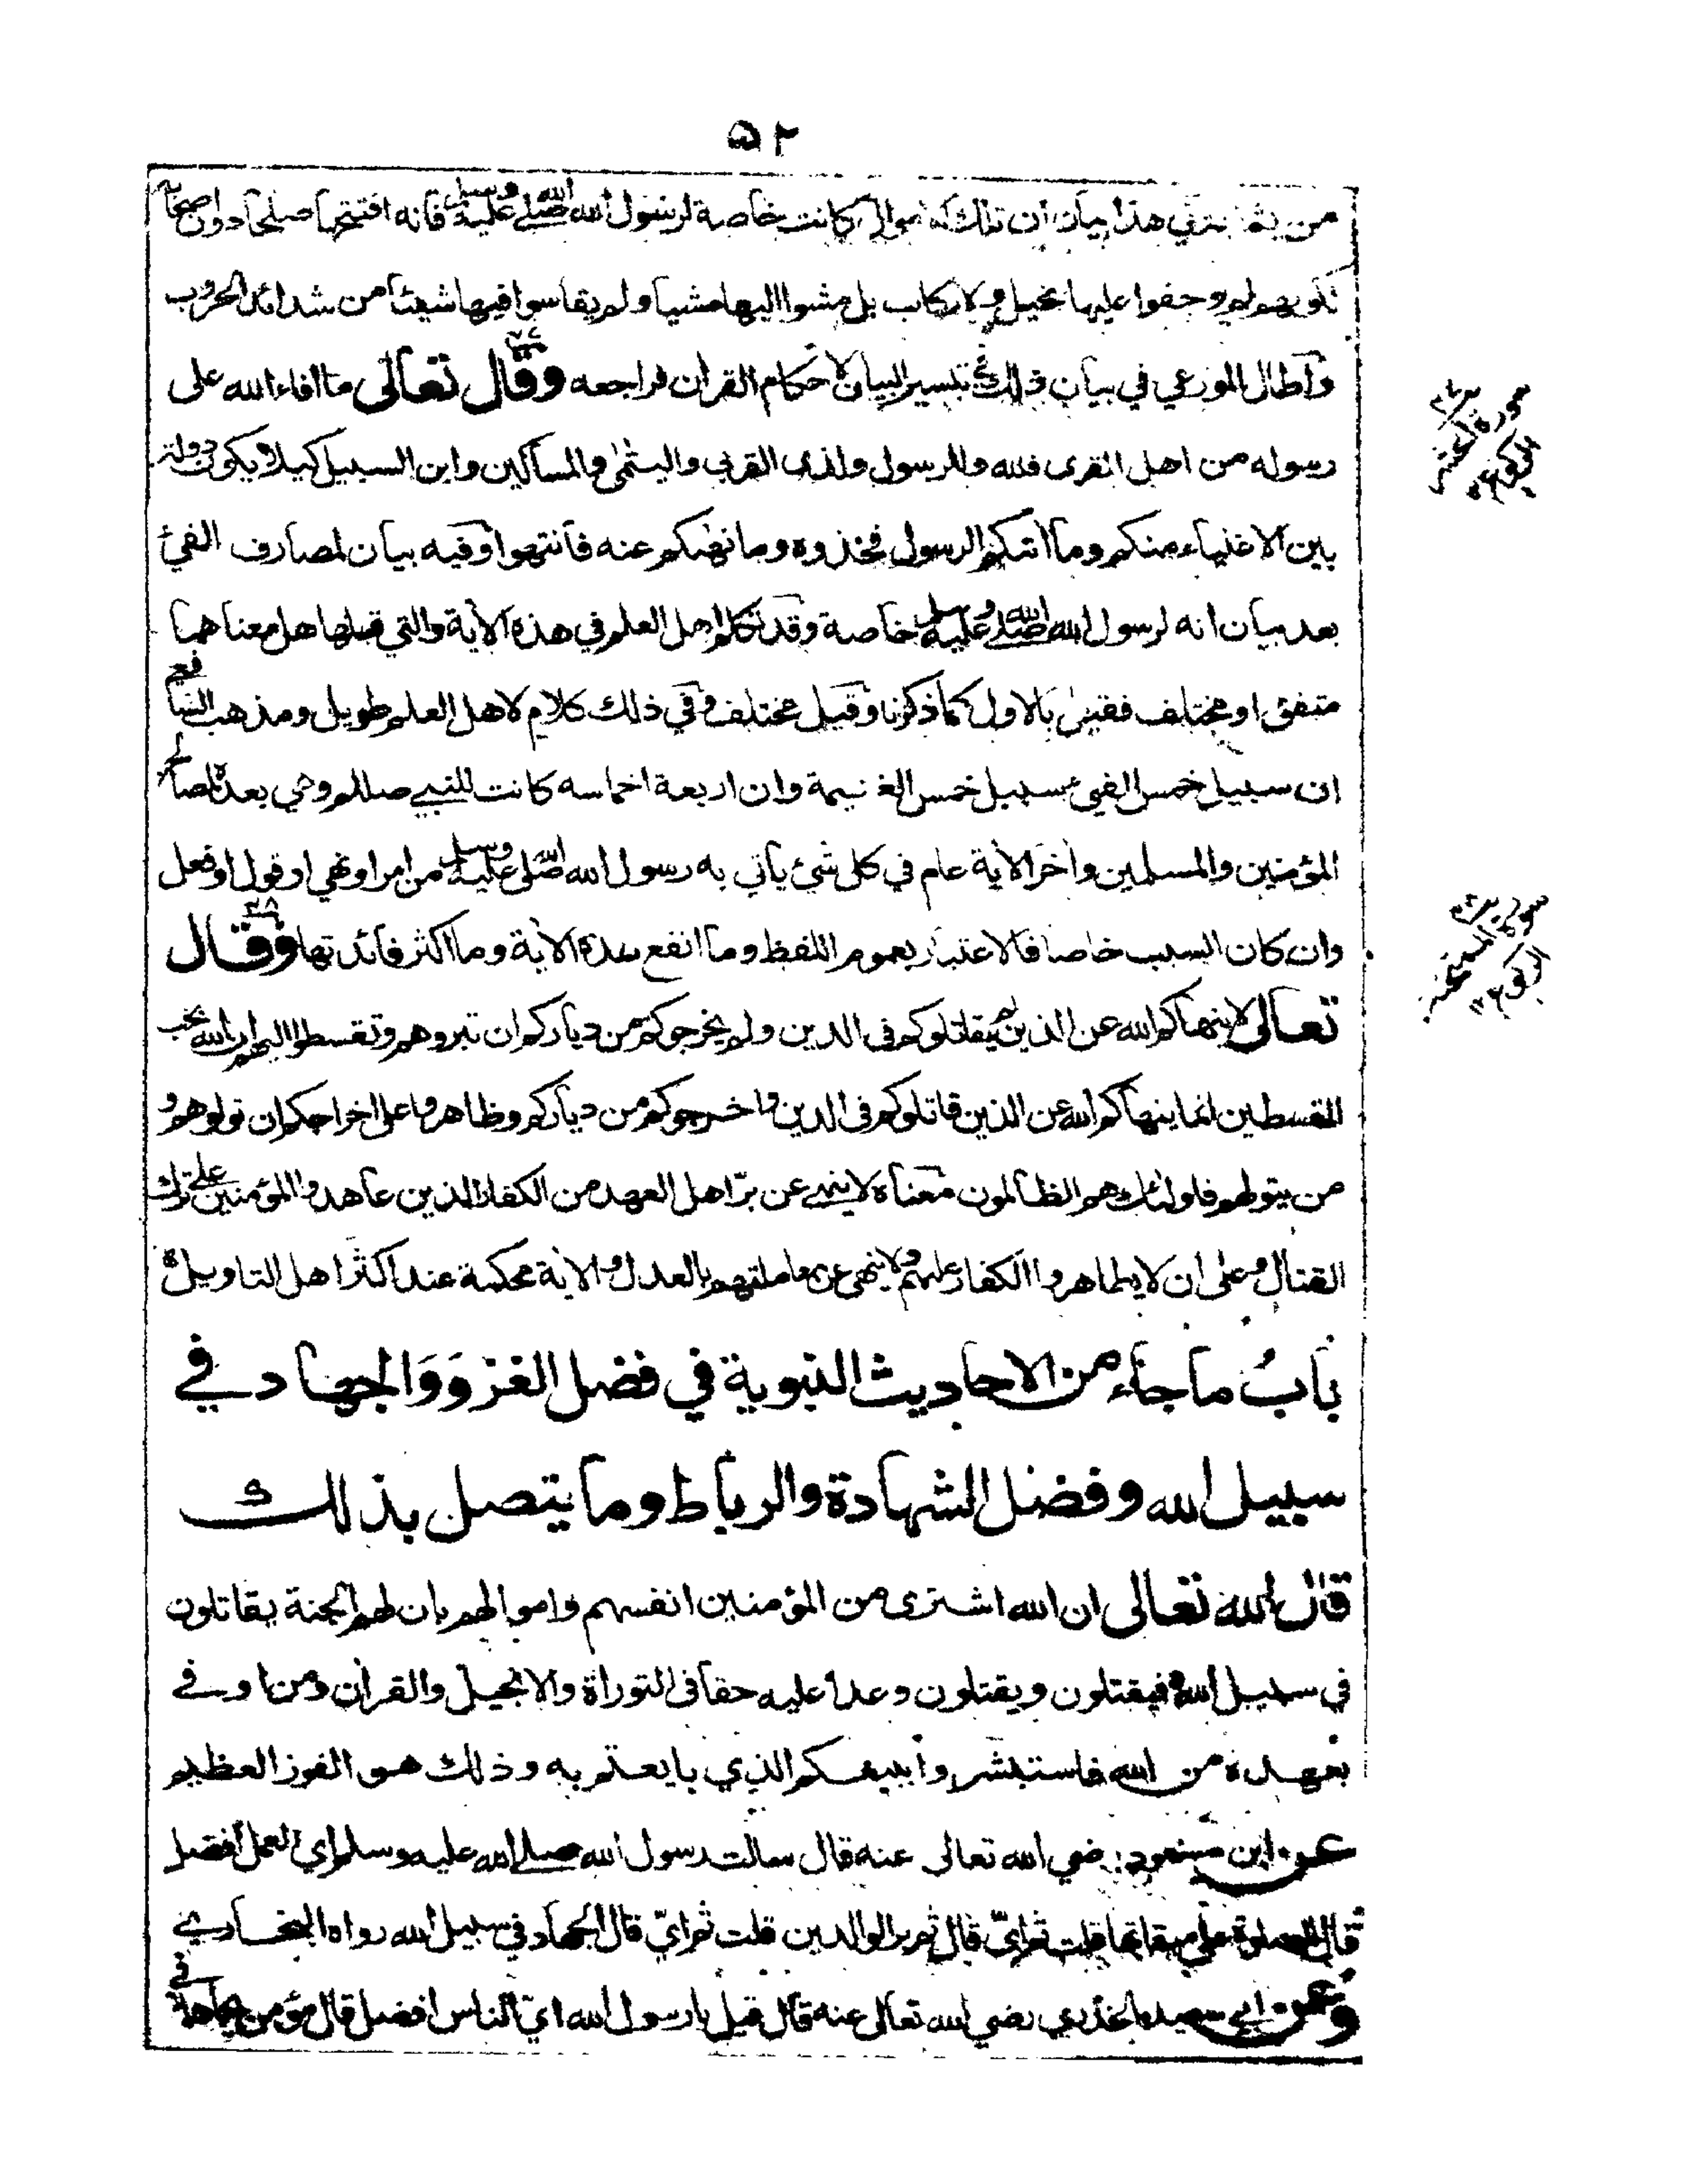 ٥٢
من يشاء في هذا بيان ان تلك الاموال كانت خاصة لرسول الله صلى الله عليه وسلم فانه افتتحها صلحا دون اصحابه
لم يوجفوا عليها بخيل ولا ركاب بل مشوا اليها مشيا ولم يقاسوا فيها شيئا من شدائد الحروب
واطال الموزعي في بيان ذلك في تيسير البيان لاحكام القرآن فراجعه وقال تعالى ما افاء الله على
رسوله من اهل القرى فلله وللرسول ولذى القربى واليتمى والمسكين وابن السبيل كيلا يكون دولة
بين الاغنياء منكم وما اتكم الرسول فخذوه وما نهكم عنه فانتهوا وفيه بيان لمصارف الفئ
بعد بيان انه لرسول الله صلى الله عليه وسلم خاصة وقد تكلم اهل العلم في هذه الاية والتي قبلها هل معناهما
متفق او مختلف فقيل بالاول كما ذكرنا وقيل مختلف وفي ذلك كلام لاهل العلم طويل ومذهب الشافعي
ان سبيل خمس الفئ سبيل خمس الغنيمة وان اربعة اخماسه كانت للنبي صللم وهي بعده لمصالح
المؤمنين والمسلمين واخر الاية عام في كل شئ يأتي به رسول الله صلى الله عليه وسلم من امر او نهي او قول او فعل
وان كان السبب خاصا فالاعتبار بعموم اللفظ وما انفع هذه الاية وما اكثر فائدتها وقال
تعالى لا ينهاكم الله عن الذين لم يقاتلوكم فى الدين ولم يخرجوكم من دياركم ان تبروهم وتقسطوا اليهم ان الله يحب
المقسطين انما ينهاكم الله عن الذين قاتلوكم فى الدين واخرجوكم من دياركم وظاهروا على اخراجكم ان تولوهم و
من يتولهم فاولئك هم الظالمون معناه لا ينهى عن برّ اهل العهد من الكفار الذين عاهدوا المؤمنين على ترك
القتال وعلى ان لا يظاهروا الكفار عليهم ولا ينهى عن معاملتهم بالعدل والاية محكمة عند اكثر اهل التاويل
باب ما جاء من الاحاديث النبوية في فضل الغزو والجهاد في
سبيل الله وفضل الشهادة والرباط وما يتصل بذلك
قال الله تعالى ان الله اشترى من المؤمنين انفسهم واموالهم بان لهم الجنة يقاتلون
في سبيل الله فيقتلون ويقتلون وعدا عليه حقا فى التوراة والانجيل والقران ومن اوفى
بعهده من الله فاستبشروا ببيعكم الذي بايعتم به وذلك هو الفوز العظيم
عن ابن مسعود رضي الله تعالى عنه قال سالت رسول الله صلى الله عليه وسلم اي العمل افضل
قال الصلوة على ميقاتها قلت ثم ايّ قال ثم بر الوالدين قلت ثم ايّ قال الجهاد في سبيل الله رواه البخاري
وعن ابي سعيد الخدري رضي الله تعالى عنه قال قيل يا رسول الله اي الناس افضل قال مؤمن يجاهد في
سورة الحشر
الركوع
سورة الممتحنة
الركوع